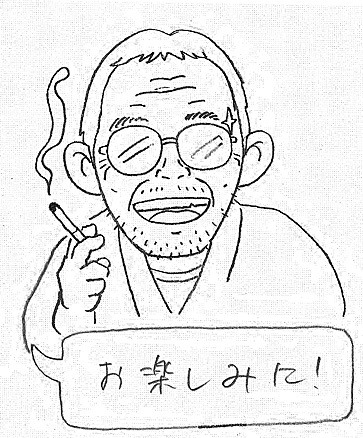 お楽しみに!